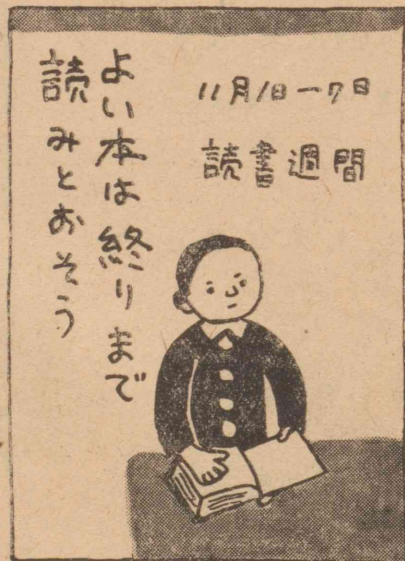 11月1日ー7日
読書週間
よい本は終りまで
読みとおそう